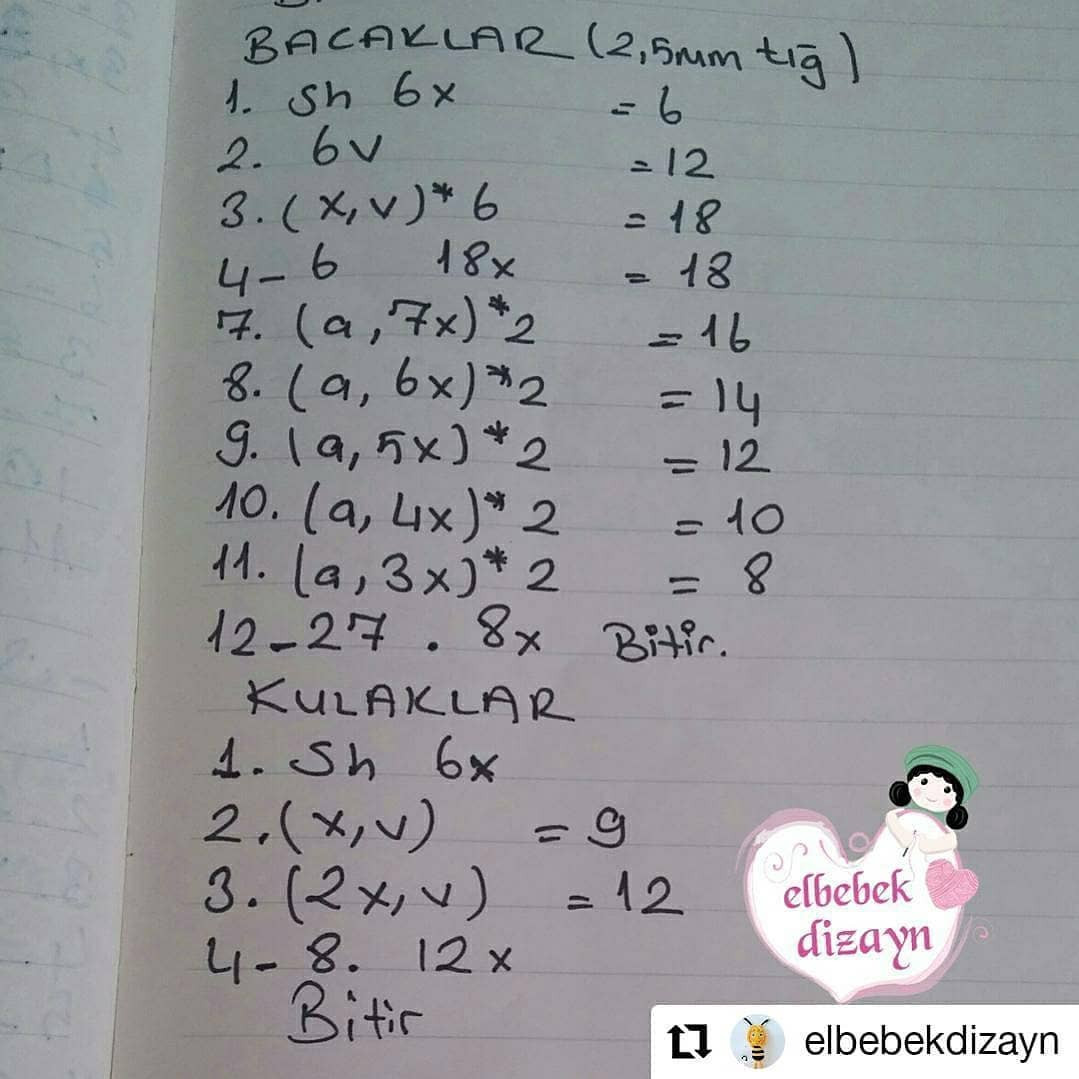 BACAKLAR (2,5mm tığ)
1. Sh 6x = 6
2. 6v = 12
3. (x,v)*6 = 18
4-6 18x = 18
7. (a,7x)*2 = 16
8. (a, 6x)*2 = 14
9. (a,5x)*2 = 12
10. (a, 4x)*2 = 10
11. (a,3x)*2 = 8
12-27. 8x Bitir.
KULAKLAR
1. Sh 6x
2. (x,v) = 9
3. (2x,v) = 12
4-8. 12x
Bitir
elbebek
dizayn
elbebekdizayn